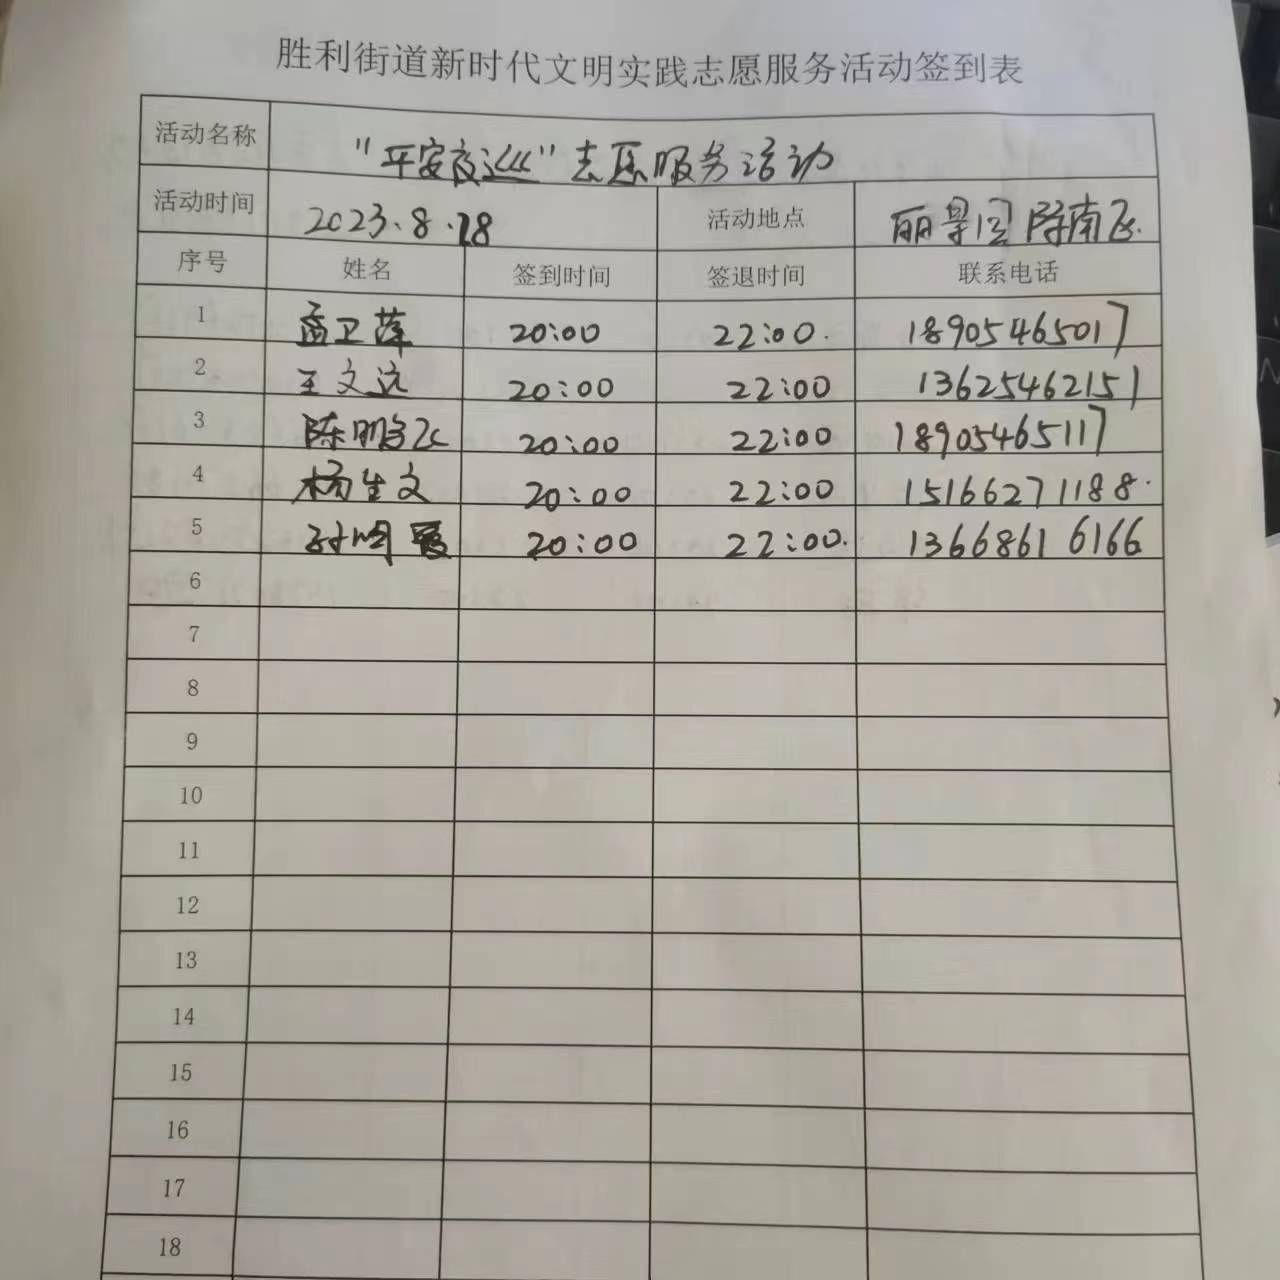 胜利街道新时代文明实践志愿服务活动签到表
活动名称 "平安夜巡"志愿服务活动
活动时间 2023.8.18 活动地点 丽景园
序号 姓名 签到时间 签退时间 联系电话
1 孟卫萍 20:00 22:00 18905465017
2 王文远 20:00 22:00 13625462151
3 陈鹏飞 20:00 22:00 18905465117
4 杨生文 20:00 22:00 15166271188
5 孙明 20:00 22:00 13668616166
6
7
8
9
10
11
12
13
14
15
16
17
18